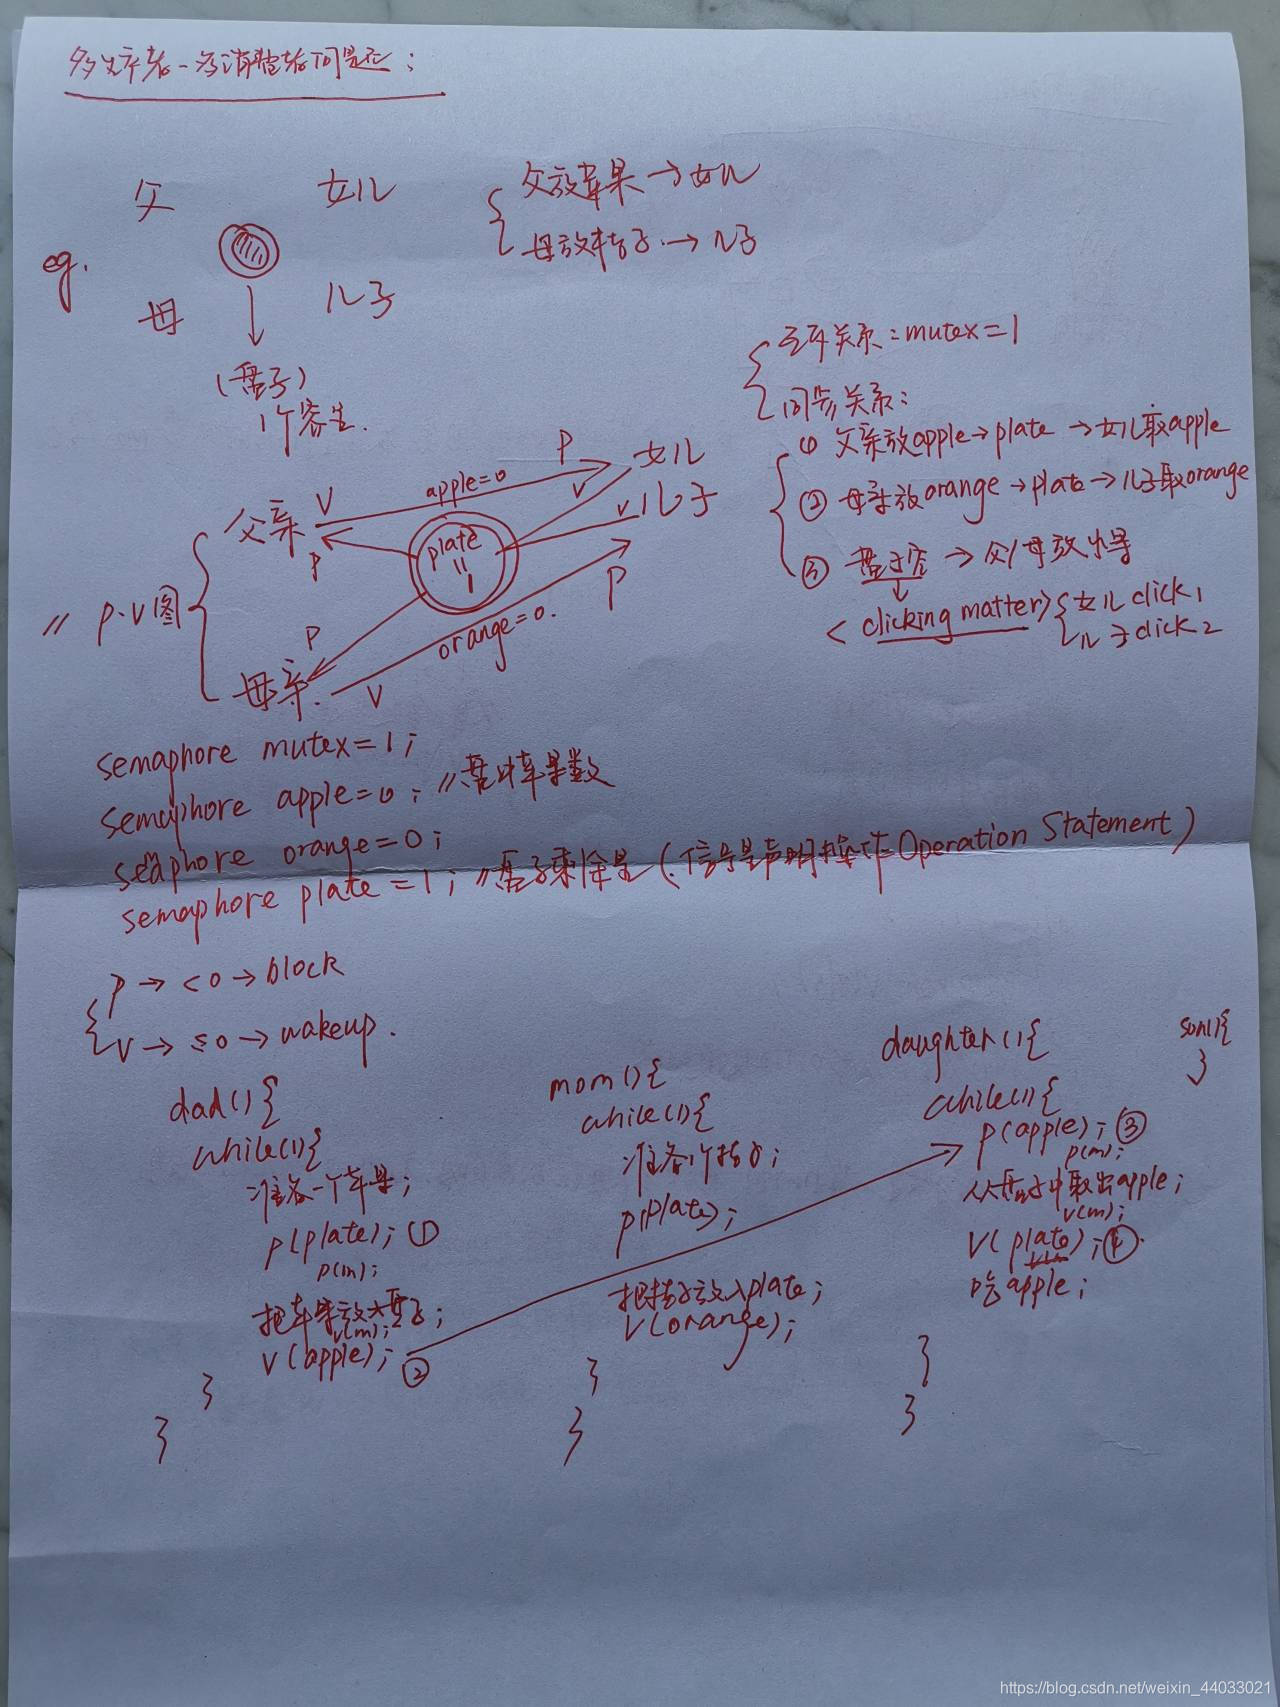 多生产者-多消费者问题:
父 女儿
eg.
母 儿子
(盘子)
1个容量.
父放苹果→女儿
母放橘子→儿子
互斥关系:mutex=1
同步关系:
① 父亲放apple→plate→女儿取apple
② 母亲放orange→plate→儿子取orange
③ 盘子空→父/母放水果
<clicking matter> 女儿 click1
儿子 click2
// P.V图
父亲 V apple=0 P 女儿
P plate V V 儿子
=
1
P orange=0. P
母亲. V
semaphore mutex=1;
semaphore apple=0; //盘中苹果数
semaphore orange=0;
semaphore plate=1; //盘子剩余量(信号量声明操作Operation Statement)
P→<0→block
V→≤0→wakeup.
dad(){
while(1){
准备一个苹果;
P(plate); ①
P(m);
把苹果放入盘子;
V(m);
V(apple); ②
}
}
mom(){
while(1){
准备1个桔子;
P(plate);
把桔子放入plate;
V(orange);
}
}
daughter(){
while(1){
P(apple); ③
P(m);
从盘子中取出apple;
V(m);
V(plate); ④.
吃apple;
}
}
son(){
}
https://blog.csdn.net/weixin_44033021